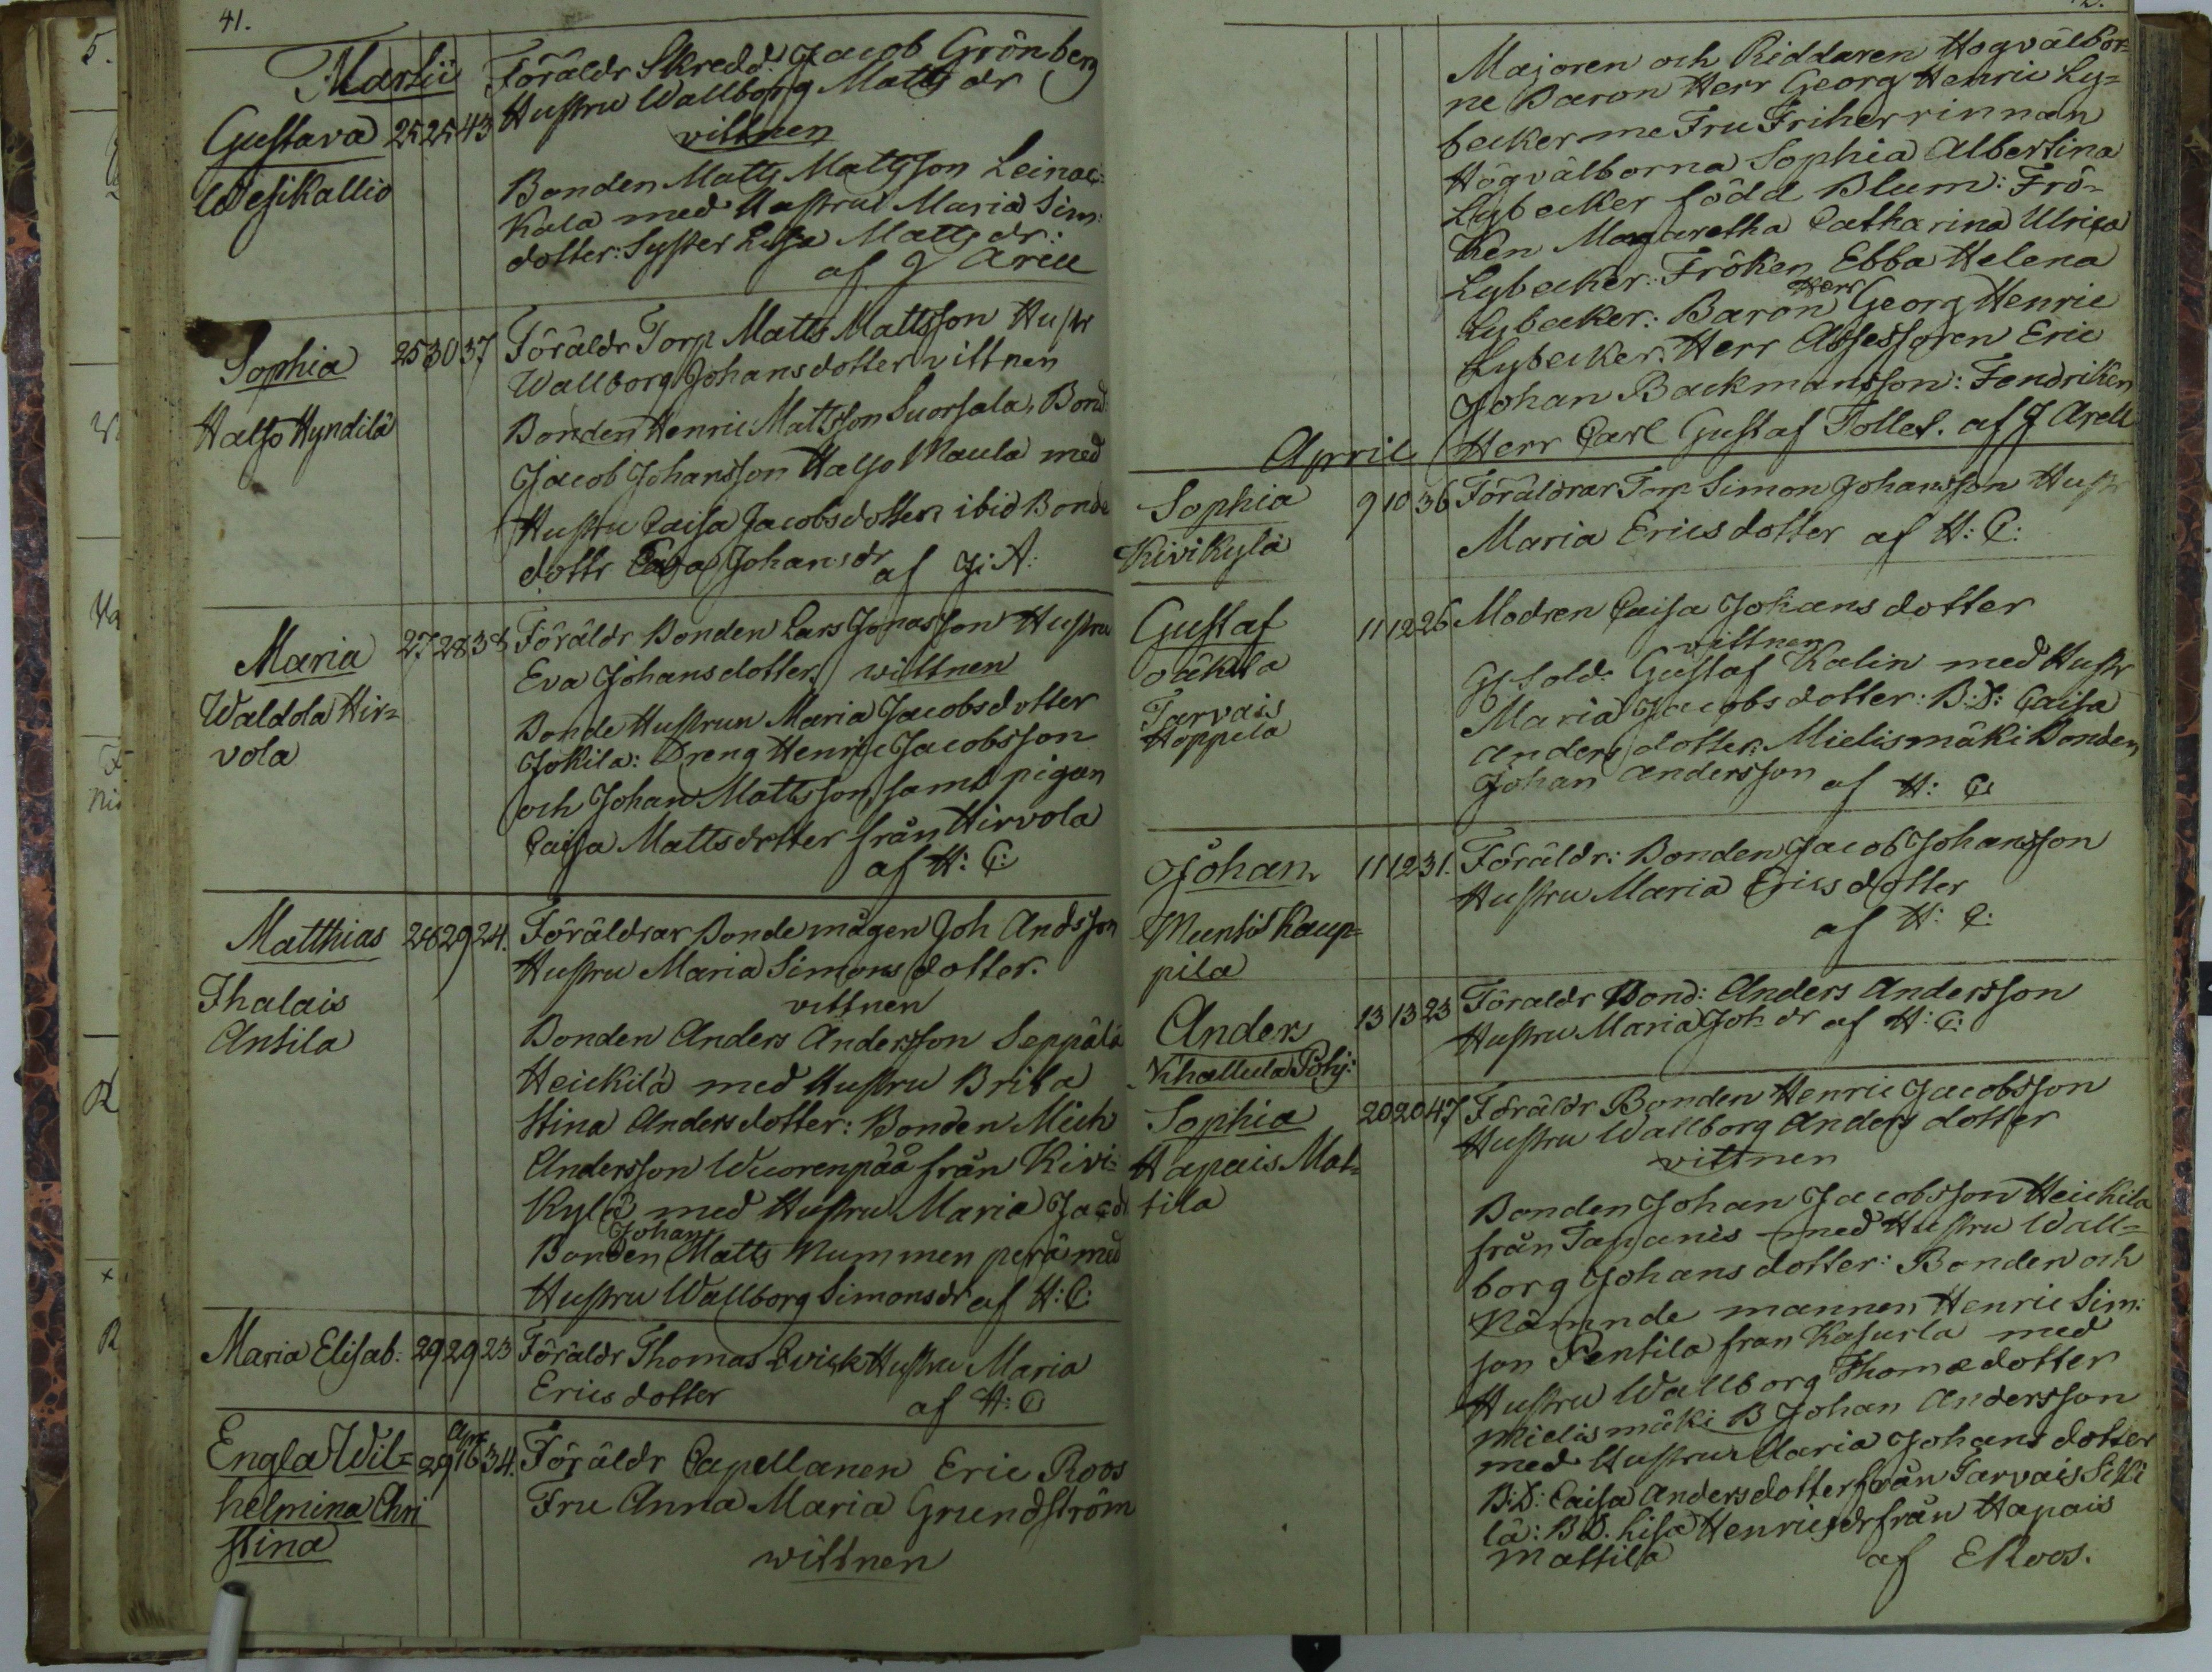 41.
Martii
Gustava 25 25 43
Wesikallio
Föräldr Skredd: Jacob Grönberg
Hustru Wallborg Matts dr
vittnen
Bonden Matts Mattsson Leinae=
Kala med Hustru Maria Sim:
dotter: Syster Lisa Matts dr:
af J Arell
Sophia 25 30 37
Halso Hyndilä
Föräldr Torp Matts Mattsson Hustr
Wallborg Johansdotter vittnen
Bonden Henric Mattsson Suorsala, Bond:
Jacob Johansson Halso Maula med
Hustru Caisa Jacobsdotter ibid Bonde
dottr Johansdr af J: A:
Maria 27 28 38
Waldola Hir=
vola
Föräldr Bonden Lars Jonasson Hustru
Eva Johansdotter wittnen
Bonde Hustrun Maria Jacobsdotter
Jokila: Dreng Henric Jacobsson
och Johan Mattsson samt pigan
Caisa Mattsdotter från Hirvola
af H: C:
Matthias 28 29 24.
Thalais
Antila
Föräldrar Bonde mågen Joh Andsson
Hustru Maria Simons dotter.
vittnen
Bonden Anders Andersson Seppälä
Heickilä med Hustru Brita
Stina Andersdotter: Bonden Mich
Andersson Wuorenpää från Kivi=
Kylä med Hustru Maria Jacdr
Johan
Bonden Matts Nummenperä med
Hustru Wallborg Simonsdr af H: C:
Maria Elisab: 29 29 23
Föräldr Thomas Qvick Hustru Maria
Ericsdotter af H: C
Engla Wil= 29 Apr 16 34.
helmina Chri
stina
Föräldr Capellanen Eric Roos
Fru Anna Maria Grundström
wittnen
Majoren och Riddaren Hogvälbor=
ne Baron Herr Georg Henric Ly=
becker me Fru Friherrinnan
Högvälborna Sophia Albertina
Lybecker född Blum: Frö=
ken Magaretha Catharina Ulrica
Lybecker: Fröken Ebba Helena
Lybecker: Baron Herr Georg Henric
Lybecker: Herr Assessoren Eric
Johan Backmansson: Fendriken
Herr Carl Gustaf Tollet. af J Arell
April
Sophia 9 10 36
Kivikylä
Föräldrar Torp Simon Johansson Hustr
Maria Ericsdotter af H: C:
Gustaf 11 12 26
oäkta
Tarvais
Hoppela
Modren Caisa Johans dotter
wittnen
Sold: Gustaf Kalin med Hustr
Maria Jacobsdotter: B: D: Caisa
Anders dotter: Mielismäki Bonden
Johan Andersson af H: C
Johan 11 12 31.
Muntis Kaup=
pila
Föräldr: Bonden Jacob Johansson
Hustru Maria Ericsdotter
af H: C:
Anders 13 13 23
Föraldr Bond: Anders Andersson
Hustru Maria Joh dr af H: C:
Khallula Pohj:
Sophia 20 20 47
Hapais Mat=
tila
Föräldr Bonden Henric Jacobsson
Hustru Wallborg Anders dotter
vittnen
Bonden Johan Jacobsson Heickila
från Tapanis med Hustru Wall=
borg Johans dotter: Bonden och
Nämnde mannen Henric Sim:
son Pentila fran Kasurla med
Hustru Wallborg Thomædotter
Mielismäki B Johan Andersson
med Hustru Maria Johans dotter
B: D: Caisa Andersdotter från Tarvais Silli
lä: B D. Lisa Henricsdr från Hapais
Mattila af E Roos.